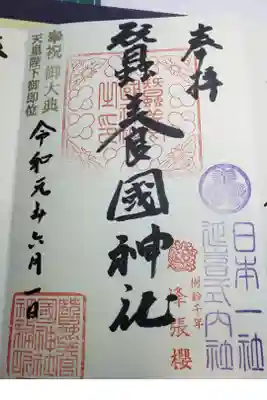 奉拝
日本一社
延喜式内社
樹齢千年
峰張櫻
蠶養國神社
奉祝 御大典
天皇陛下御即位
令和元年六月一日